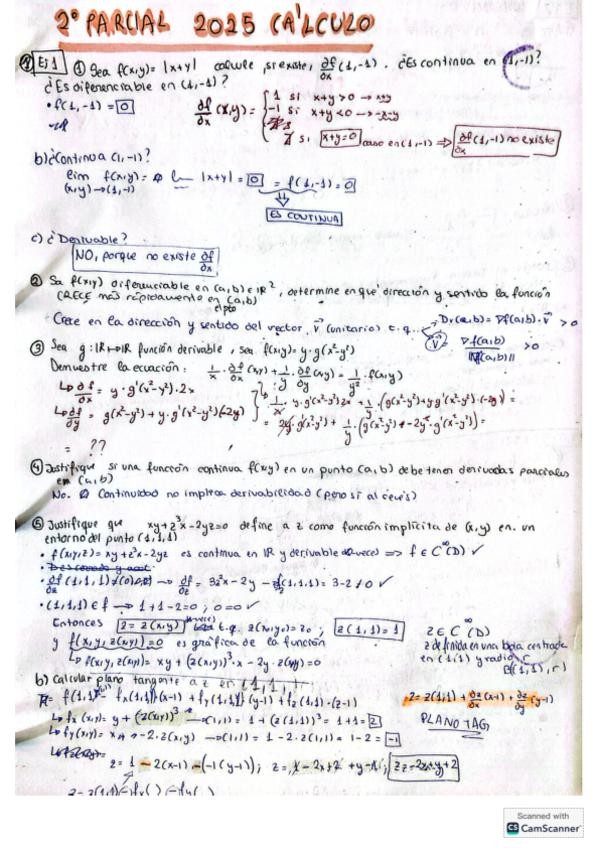 2º PARCIAL 2025 CÁLCULO
EJ 1 ① Sea f(x,y)= |x+y| calcule, si existe, ∂f/∂x (1,-1). ¿Es continua en (1,-1)?
¿Es diferenciable en (1,-1)?
• f(1,-1) = 0
∂f/∂x (x,y) = { 1 si x+y > 0 → x+y
-1 si x+y < 0 → -x-y
∄ si x+y=0 caso en (1,-1) ⇒ ∂f/∂x (1,-1) no existe
b) ¿Continua (1,-1)?
lim f(x,y) = lim |x+y| = 0 = f(1,-1) = 0
(x,y)→(1,-1)
ES CONTINUA
c) ¿Derivable?
NO, porque no existe ∂f/∂x
② Sa f(x,y) diferenciable en (a,b) ∈ IR², determine en que dirección y sentido la función
CRECE más rápidamente en (a,b)
el pto
Crece en la dirección y sentido del vector v⃗ (unitario) t.q. Dv(a,b) = ∇f(a,b)·v⃗ > 0
v⃗ = ∇f(a,b) / ||∇f(a,b)|| > 0
③ Sea g: IR→IR función derivable, sea f(x,y)= y·g(x²-y²)
Demuestre la ecuación: 1/x · ∂f/∂x (x,y) + 1/y · ∂f/∂y (x,y) = 1/y² · f(x,y)
↳ ∂f/∂x = y·g'(x²-y²)·2x
↳ ∂f/∂y = g(x²-y²) + y·g'(x²-y²)(-2y)
1/x · y·g'(x²-y²)2x + 1/y · (g(x²-y²)+y·g'(x²-y²)·(-2y)) =
= 2y·g'(x²-y²) + 1/y · (g(x²-y²) + -2y²·g'(x²-y²)) =
= ??
④ Justifique si una función continua f(x,y) en un punto (a,b) debe tener derivadas parciales
en (a,b)
No. Continuidad no implica derivabilidad (pero si al revés)
⑤ Justifique que xy+z³x-2yz=0 define a z como función implícita de (x,y) en un
entorno del punto (1,1,1)
• f(x,y,z)=xy+z³x-2yz es continua en IR y derivable ∞ veces ⇒ f ∈ C^∞(D) ✓
• ∂f/∂z (1,1,1) ≠ 0 → ∂f/∂z = 3z²x-2y → f(1,1,1) = 3-2 ≠ 0 ✓
• (1,1,1) ∈ f → 1+1-2=0 ; 0=0 ✓
Entonces z = z(x,y) t.q. z(x₀,y₀) = z₀ ; z(1,1)=1
y f(x,y,z(x,y))=0 es gráfica de la función
z ∈ C^∞(D)
z definida en una bola centrada
en (1,1) y radio r
B((1,1), r)
↳ f(x,y,z(x,y)) = xy + (z(x,y))³·x - 2y·z(x,y) = 0
b) Calcular plano tangente a z en (1,1,1)
π = f(1,1,1) - fx(1,1,1)(x-1) + fy(1,1,1)(y-1) + fz(1,1,1)·(z-1)
z = z(1,1) + ∂z/∂x (x-1) + ∂z/∂y (y-1)
↳ fx(x,y) = y + (z(x,y))³ → (1,1) = 1 + (z(1,1))³ = 1+1 = 2
PLANO TAG
↳ fy(x,y) = x - 2·z(x,y) → (1,1) = 1 - 2·z(1,1) = 1-2 = -1
z = 1 - 2(x-1) - (-1(y-1)) ; z = 1 - 2x + 2 + y - 1 ; z = -2x+y+2
z = z(1,1) - fx( ) - fy( )
Scanned with
CS CamScanner